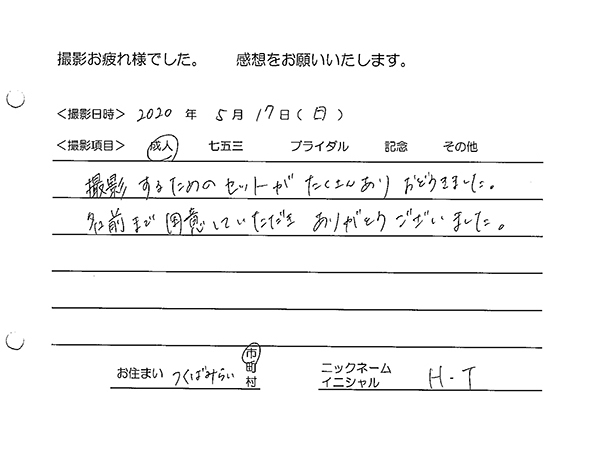 撮影お疲れ様でした。 感想をお願いいたします。
<撮影日時> 2020 年 5月 17日(日)
<撮影項目> 成人 七五三 ブライダル 記念 その他
撮影するためのセットがたくさんありおどろきました。
名前まで用意していただきありがとうございました。
お住まい つくばみらい 市町村
ニックネーム イニシャル H.T